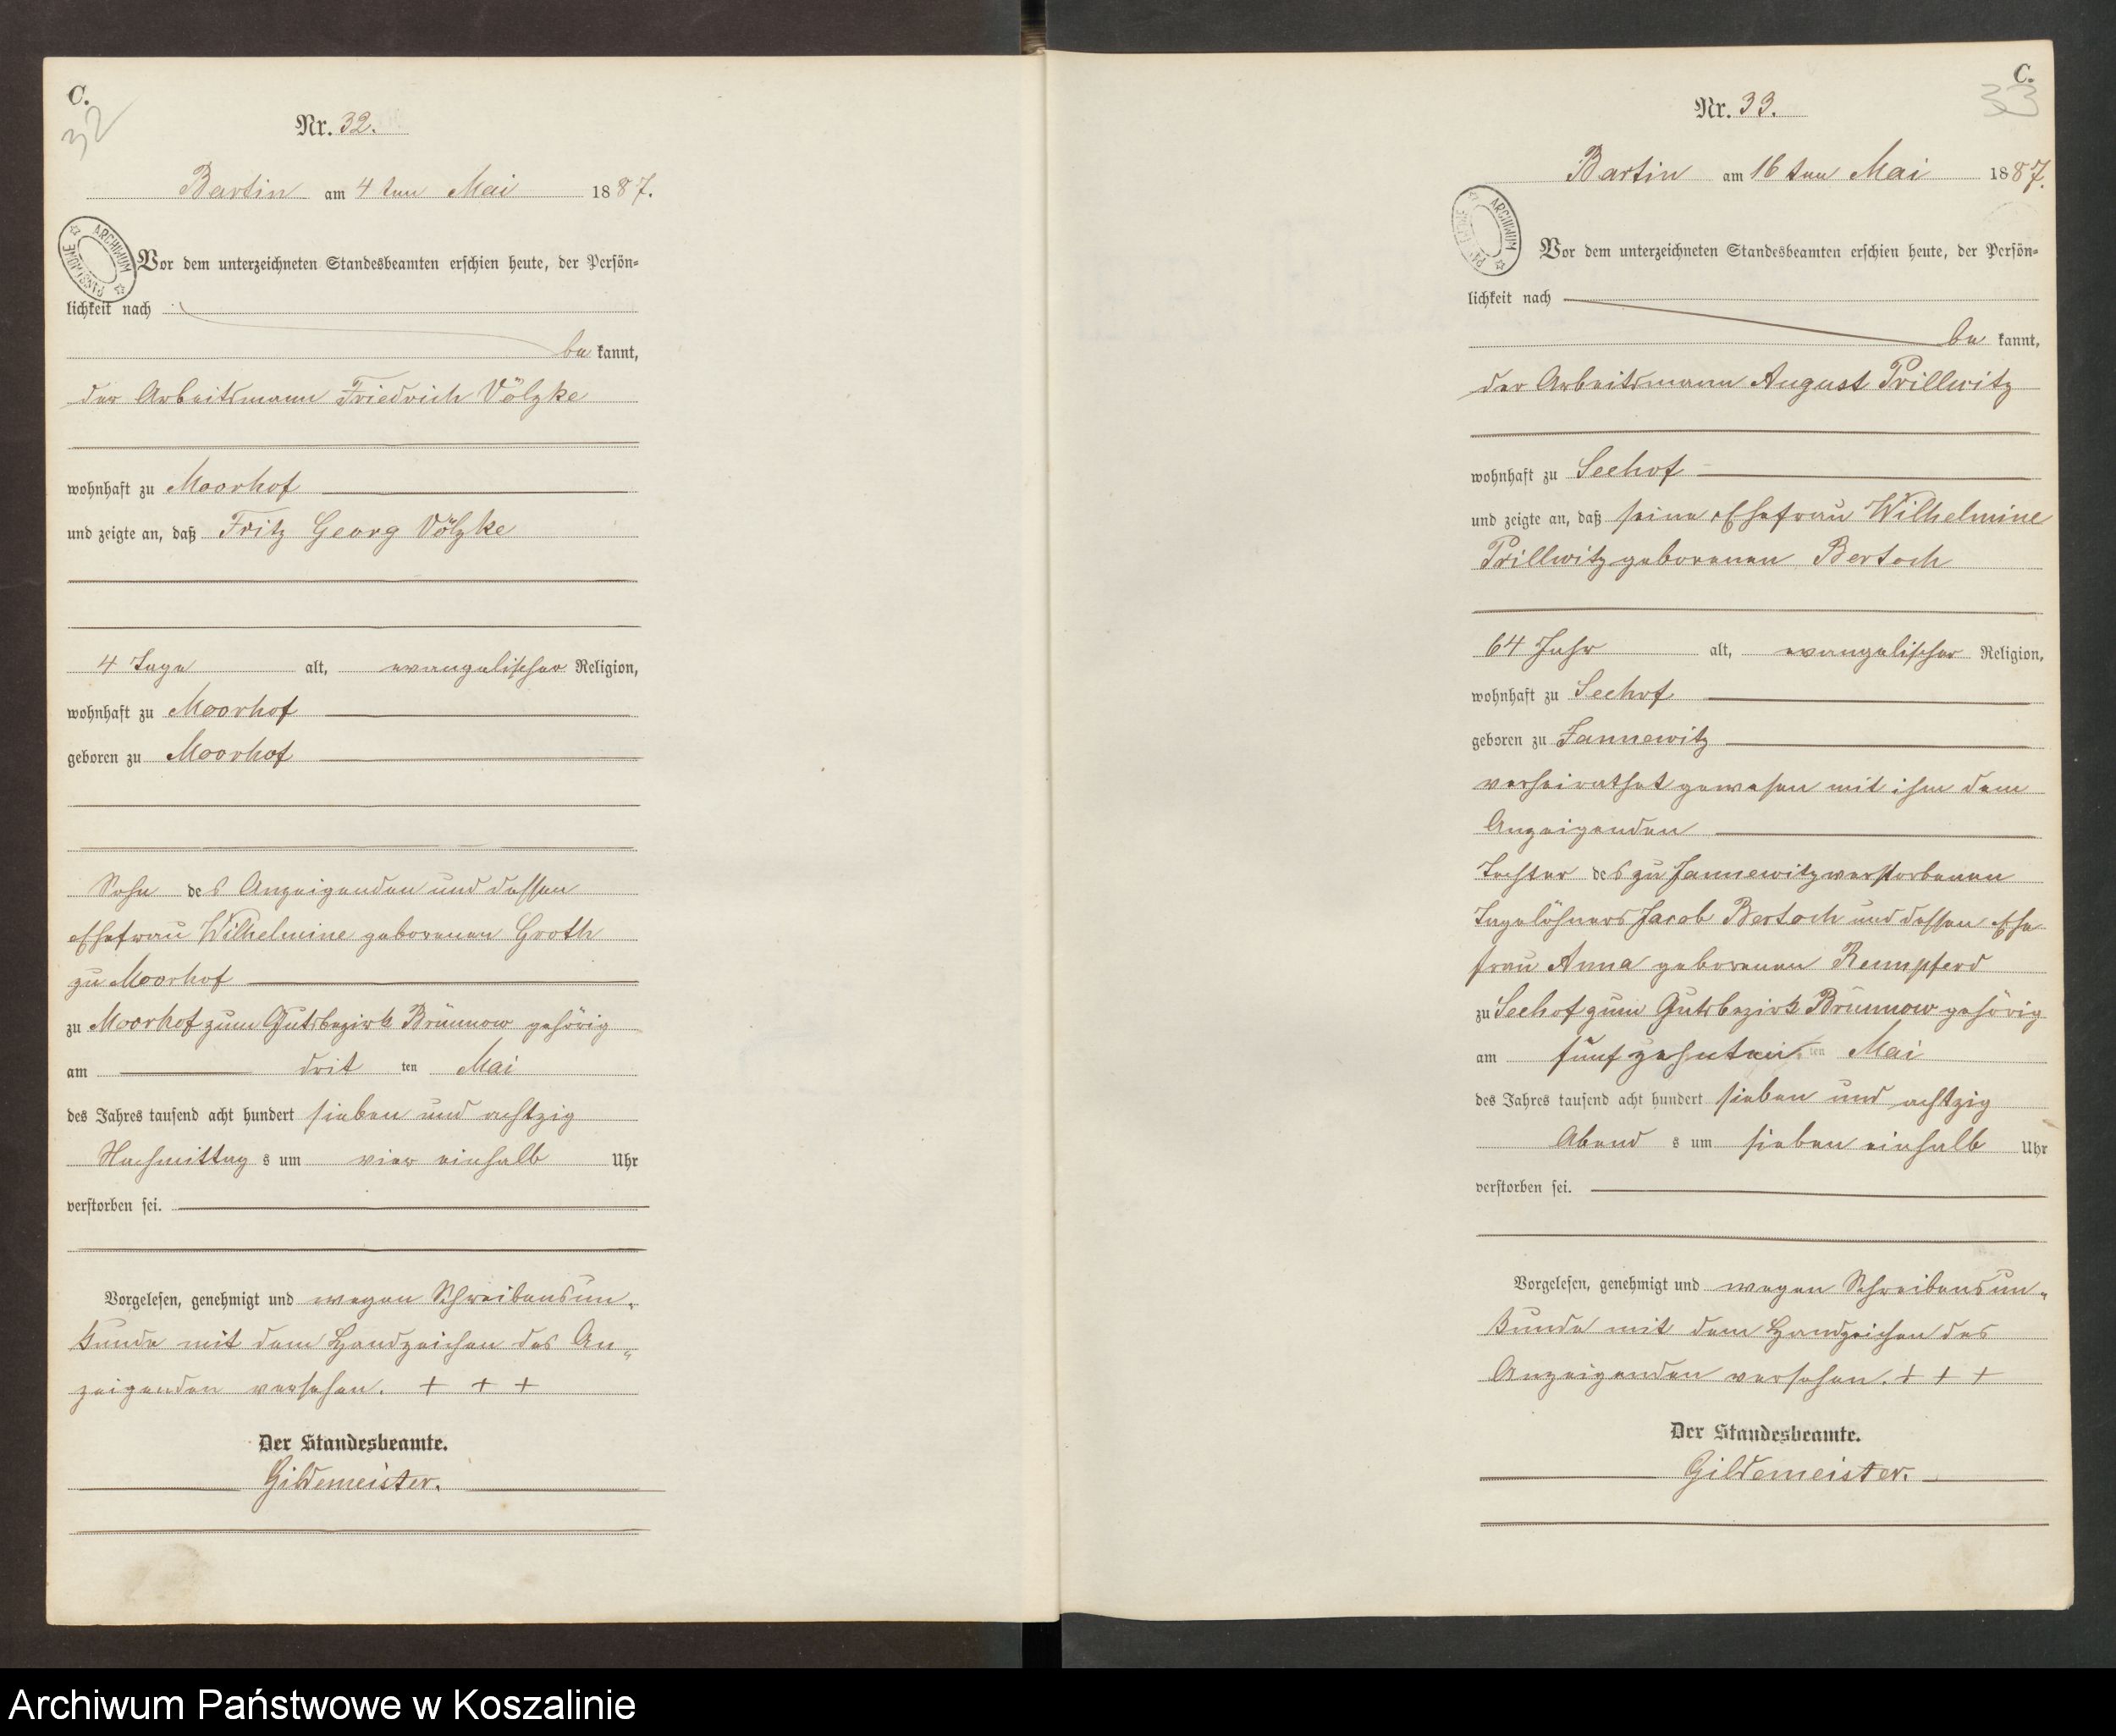 C.
32
Nr. 32.
Bartin am 4 ten Mai 1887.
ARCHIWUM PAŃSTWOWE
Vor dem unterzeichneten Standesbeamten erschien heute, der Persön-
lichkeit nach
be kannt,
der Arbeitsmann Friedrich Völzke
wohnhaft zu Moorhof
und zeigte an, daß Fritz Georg Völzke
4 Tage alt, evangelischer Religion,
wohnhaft zu Moorhof
geboren zu Moorhof
Sohn des Anzeigenden und dessen
Ehefrau Wilhelmine geborenen Groth
zu Moorhof
zu Moorhof zum Gutsbezirk Brünnow gehörig
am drit ten Mai
des Jahres tausend acht hundert sieben und achtzig
Nachmittag s um vier einhalb Uhr
verstorben sei.
Vorgelesen, genehmigt und wegen Schreibensun-
kunde mit dem Handzeichen des An-
zeigenden versehen. + + +
Der Standesbeamte.
Gildemeister.
C.
33
Nr. 33.
Bartin am 16 ten Mai 1887.
ARCHIWUM
Vor dem unterzeichneten Standesbeamten erschien heute, der Persön-
lichkeit nach
be kannt,
der Arbeitsmann August Prillwitz
wohnhaft zu Seehof
und zeigte an, daß seine Ehefrau Wilhelmine
Prillwitz geborenen Bertoch
64 Jahr alt, evangelischer Religion,
wohnhaft zu Seehof
geboren zu Jannewitz
verheirathet gewesen mit ihm dem
Anzeigenden
Tochter des zu Jannewitz verstorbenen
Tagelöhners Jacob Bertoch und dessen Ehe
frau Anna geborenen Rennpferd
zu Seehof zum Gutsbezirk Brünnow gehörig
am fünfzehnten ten Mai
des Jahres tausend acht hundert sieben und achtzig
Abend s um sieben einhalb Uhr
verstorben sei.
Vorgelesen, genehmigt und wegen Schreibensun-
kunde mit dem Handzeichen des
Anzeigenden versehen. + + +
Der Standesbeamte.
Gildemeister.
Archiwum Państwowe w Koszalinie